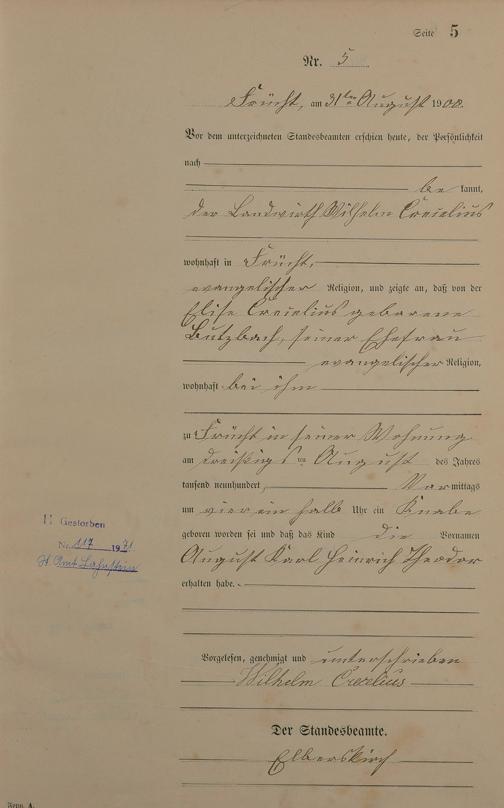 Seite 5
Nr. 5
Frücht, am 31ten August 1900.
Vor dem unterzeichneten Standesbeamten erschien heute, der Persönlichkeit
nach
be kannt,
der Landwirth Wilhelm Crecelius
wohnhaft in Frücht,
evangelischer Religion, und zeigte an, daß von der
Elise Crecelius geborene
Butzbach, seiner Ehefrau
evangelischer Religion,
wohnhaft bei ihm
zu Frücht in seiner Wohnung
am dreißigsten August des Jahres
tausend neunhundert, Vor mittags
um vier ein halb Uhr ein Knabe
geboren worden sei und daß das Kind die Vornamen
August Karl Heinrich Theodor
erhalten habe.
Vorgelesen, genehmigt und unterschrieben
Wilhelm Crecelius
Der Standesbeamte.
Elberskirch
Gestorben
Nr. 117 1971
St. Amt Lahnstein
Form. A.